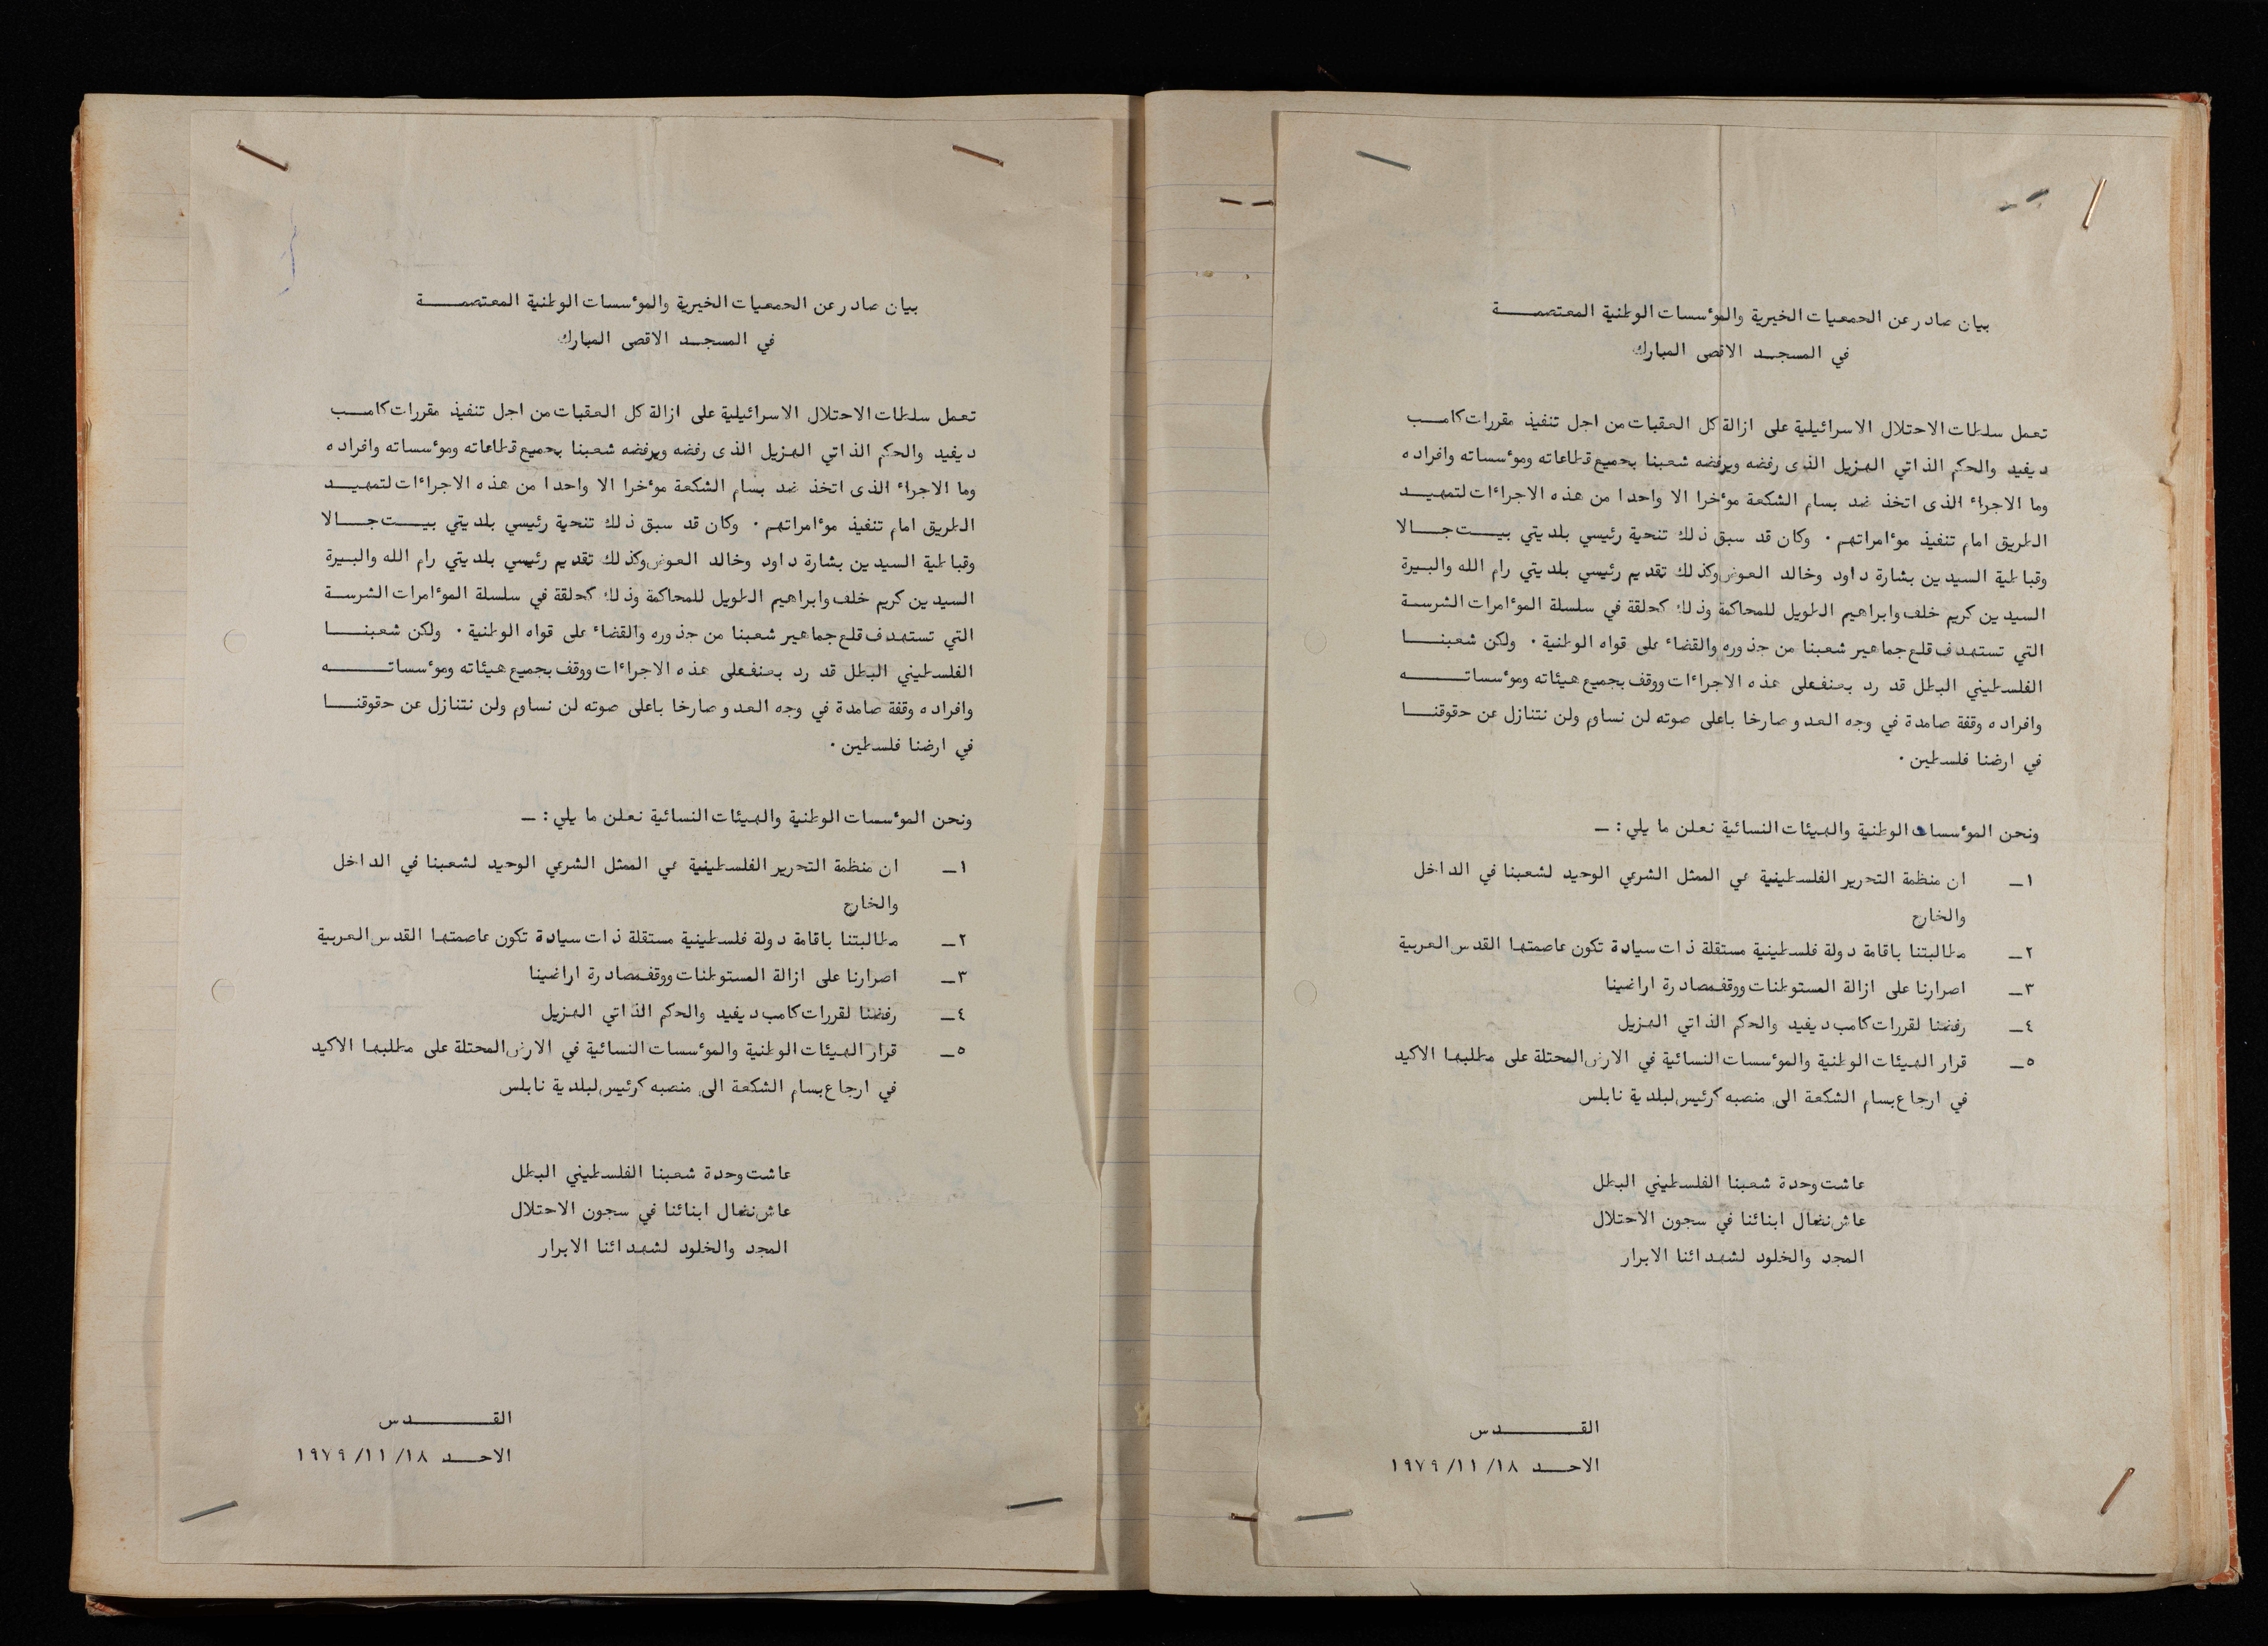 بيان صادر عن الحمعيات الخيرية والموءسسات الوطنية المعتصمـــــة
في المسجــد الاقصى المبارك
تعمل سلطات الاحتلال الاسرائيلية على ازالة كل العقبات من اجل تنفيذ مقررات كامــب
ديفيد والحكم الذاتي الهزيل الذى رفضه ويرفضه شعبنا بجميع قطاعاته وموءسساته وافراده
وما الاجراء الذى اتخذ ضد بسام الشكعة موءخرا الا واحدا من هذه الاجراءات لتمهيــد
الطريق امام تنفيذ موءامراتهم . وكان قد سبق ذلك تنحية رئيسي بلديتي بيــت جــالا
وقباطية السيدين بشارة داود وخالد العوض وكذلك تقديم رئيسي بلديتي رام الله والبيرة
السيدين كريم خلف وابراهيم الطويل للمحاكمة وذلك كحلقة في سلسلة الموءامرات الشرسة
التي تستهدف قلع جماهير شعبنا من جذوره والقضاء على قواه الوطنية . ولكن شعبنــا
الفلسطيني البطل قد رد بعنف على هذه الاجراءات ووقف بجميع هيئاته وموءسساتــــه
وافراده وقفة صامدة في وجه العدو صارخا باعلى صوته لن نساوم ولن نتنازل عن حقوقنــا
في ارضنا فلسطين .
ونحن الموءسسات الوطنية والهيئات النسائية نعلن ما يلي : ـ
١ـ ان منظمة التحرير الفلسطينية هي الممثل الشرعي الوحيد لشعبنا في الداخل
والخارج
٢ـ مطالبتنا باقامة دولة فلسطينية مستقلة ذات سيادة تكون عاصمتها القدس العربية
٣ـ اصرارنا على ازالة المستوطنات ووقف مصادرة اراضينا
٤ـ رفضنا لقررات كامب ديفيد والحكم الذاتي الهزيل
٥ـ قرار الهيئات الوطنية والموءسسات النسائية في الارض المحتلة على مطلبها الاكيد
في ارجاع بسام الشكعة الى منصبه كرئيس لبلدية نابلس
عاشت وحدة شعبنا الفلسطيني البطل
عاش نضال ابنائنا في سجون الاحتلال
المجد والخلود لشهدائنا الابرار
القـــــــدس
الاحــد ١٩٧٩/١١/١٨
بيان صادر عن الحمعيات الخيرية والموءسسات الوطنية المعتصمـــــة
في المسجــد الاقصى المبارك
تعمل سلطات الاحتلال الاسرائيلية على ازالة كل العقبات من اجل تنفيذ مقررات كامــب
ديفيد والحكم الذاتي الهزيل الذى رفضه ويرفضه شعبنا بجميع قطاعاته وموءسساته وافراده
وما الاجراء الذى اتخذ ضد بسام الشكعة موءخرا الا واحدا من هذه الاجراءات لتمهيــد
الطريق امام تنفيذ موءامراتهم . وكان قد سبق ذلك تنحية رئيسي بلديتي بيــت جــالا
وقباطية السيدين بشارة داود وخالد العوض وكذلك تقديم رئيسي بلديتي رام الله والبيرة
السيدين كريم خلف وابراهيم الطويل للمحاكمة وذلك كحلقة في سلسلة الموءامرات الشرسة
التي تستهدف قلع جماهير شعبنا من جذوره والقضاء على قواه الوطنية . ولكن شعبنــا
الفلسطيني البطل قد رد بعنف على هذه الاجراءات ووقف بجميع هيئاته وموءسساتــــه
وافراده وقفة صامدة في وجه العدو صارخا باعلى صوته لن نساوم ولن نتنازل عن حقوقنــا
في ارضنا فلسطين .
ونحن الموءسسات الوطنية والهيئات النسائية نعلن ما يلي : ـ
١ـ ان منظمة التحرير الفلسطينية هي الممثل الشرعي الوحيد لشعبنا في الداخل
والخارج
٢ـ مطالبتنا باقامة دولة فلسطينية مستقلة ذات سيادة تكون عاصمتها القدس العربية
٣ـ اصرارنا على ازالة المستوطنات ووقف مصادرة اراضينا
٤ـ رفضنا لقررات كامب ديفيد والحكم الذاتي الهزيل
٥ـ قرار الهيئات الوطنية والموءسسات النسائية في الارض المحتلة على مطلبها الاكيد
في ارجاع بسام الشكعة الى منصبه كرئيس لبلدية نابلس
عاشت وحدة شعبنا الفلسطيني البطل
عاش نضال ابنائنا في سجون الاحتلال
المجد والخلود لشهدائنا الابرار
القـــــــدس
الاحــد ١٩٧٩/١١/١٨